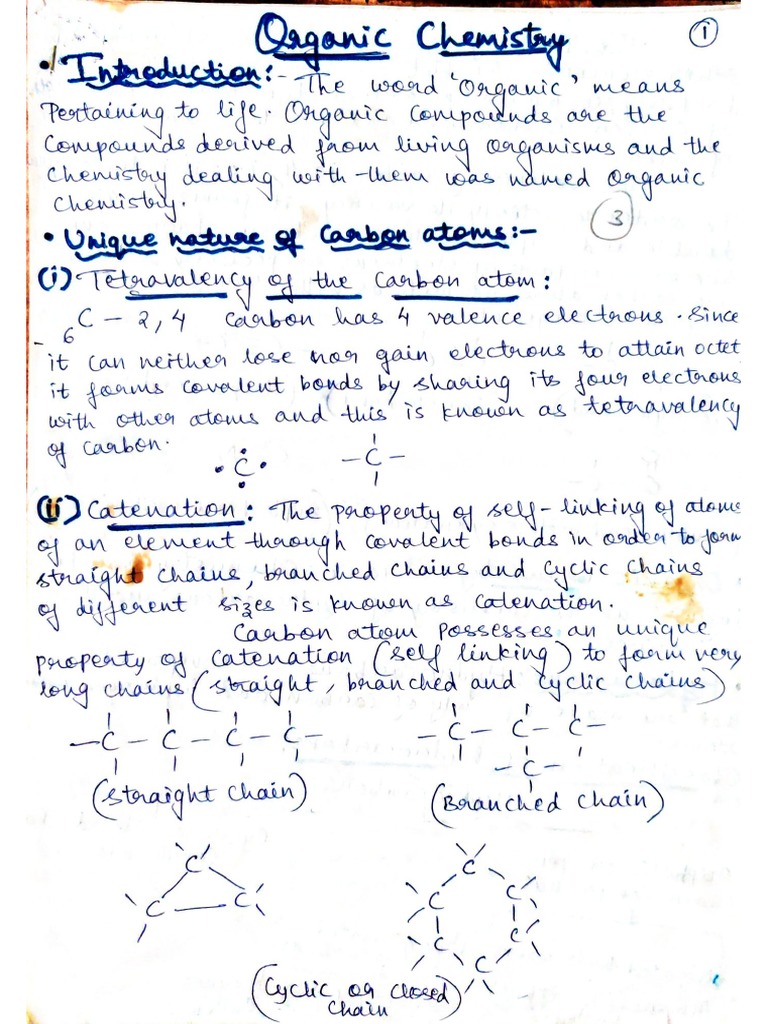 Organic Chemistry 1
• Introduction:- The word 'Organic' means
Pertaining to life. Organic compounds are the
Compounds derived from living organisms and the
Chemistry dealing with them was named Organic
Chemistry.
3
• Unique nature of Carbon atoms:-
(i) Tetravalency of the Carbon atom:
₆C – 2, 4 Carbon has 4 valence electrons. Since
it can neither lose nor gain electrons to attain octet
it forms covalent bonds by sharing its four electrons
with other atoms and this is known as tetravalency
of carbon.
C –C–
(ii) Catenation: The property of self-linking of atoms
of an element through covalent bonds in order to form
straight chains, branched chains and cyclic chains
of different sizes is known as catenation.
Carbon atom possesses an unique
property of catenation (self linking) to form very
long chains (straight, branched and cyclic chains)
–C – C – C – C– –C – C– C–
–C–
(Straight chain) (Branched chain)
C C
C C
C C
C C
C
(Cyclic or closed)
chain